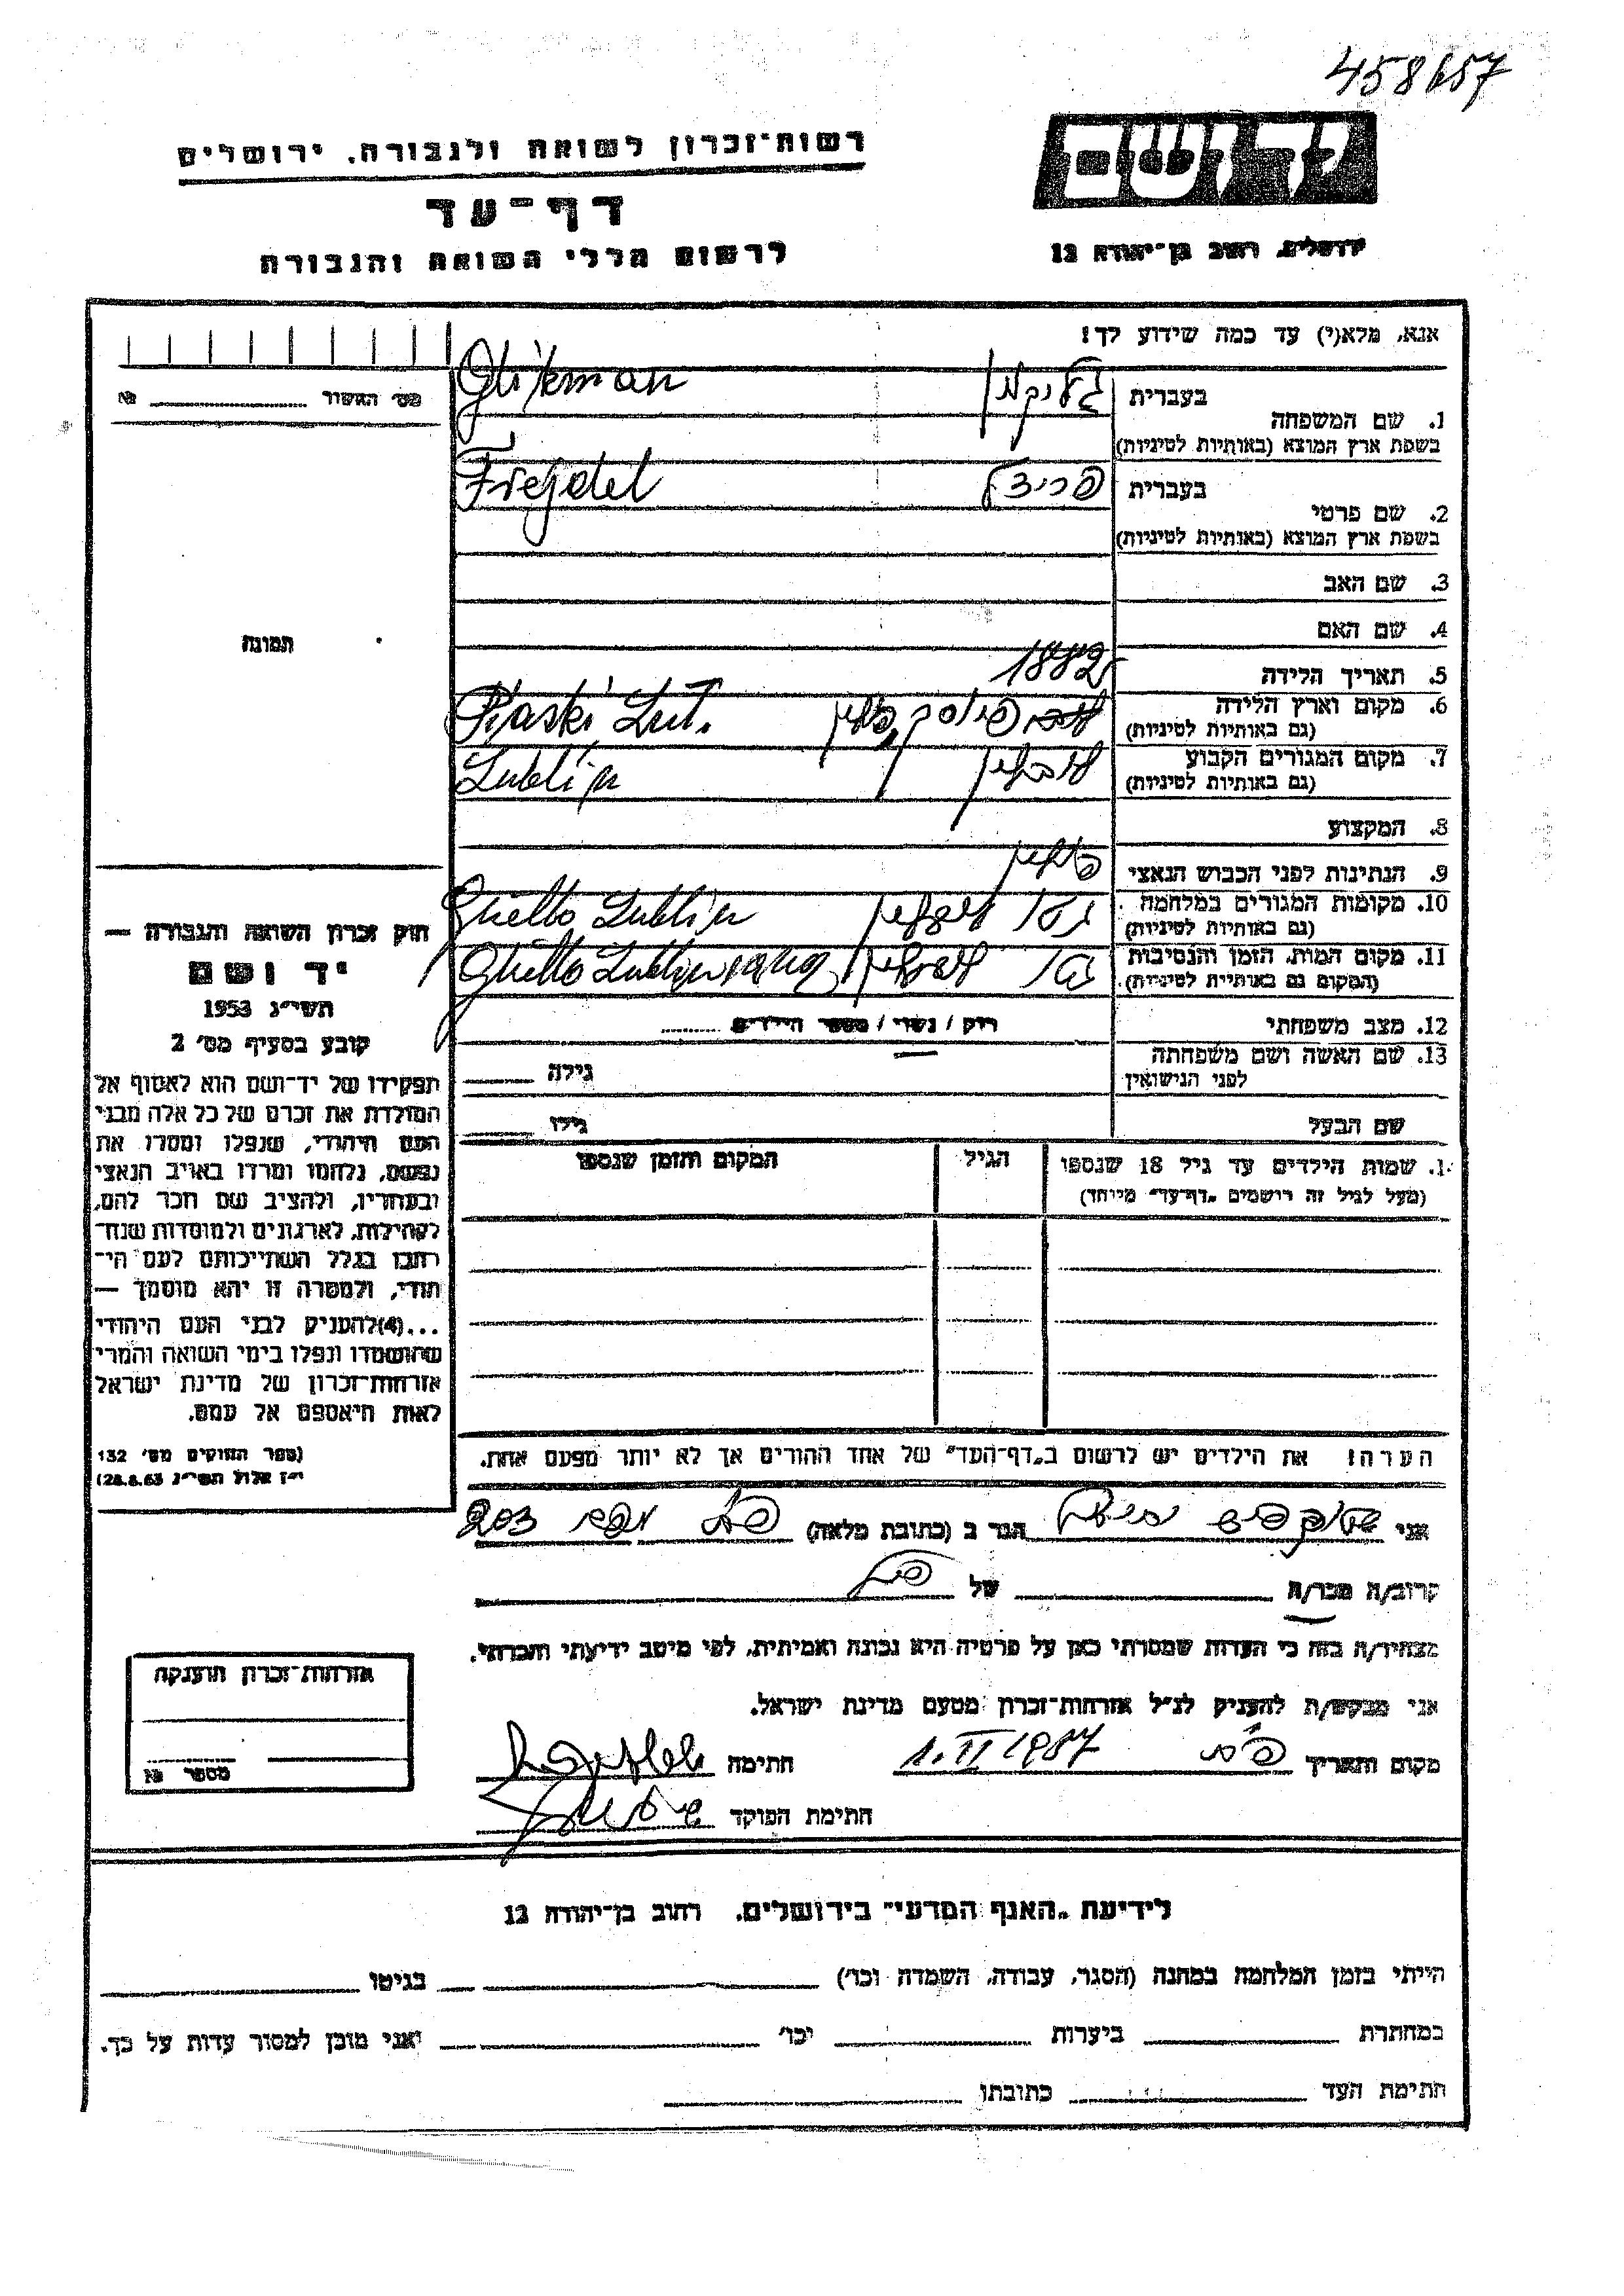 458657
רשות-זכרון לשואה ולגבורה, ירושלים
יד ושם
דף-עד
לרשום חללי השואה והגבורה
ירושלים, רחוב בן-יהודה 12
אנא, מלא(י) עד כמה שידוע לך!
מס' האשור № 
1. שם המשפחה בעברית גליקמן
בשפת ארץ המוצא (באותיות לטיניות) Glikman
2. שם פרטי בעברית פריידל
בשפת ארץ המוצא (באותיות לטיניות) Frejdel
3. שם האב
4. שם האם
תמונה
5. תאריך הלידה 1882
6. מקום וארץ הלידה (גם באותיות לטיניות) פיוסק, פולין Piaski Lut.
7. מקום המגורים הקבוע (גם באותיות לטיניות) לובלין Lublin
8. המקצוע
9. הנתינות לפני הכבוש הנאצי פולין
10. מקומות המגורים במלחמה (גם באותיות לטיניות) גטו לובלין Ghetto Lublin
11. מקום המות, הזמן והנסיבות (המקום גם באותיות לטיניות) גטו לובלין Ghetto Lublin
12. מצב משפחתי רווק / נשוי / מספר הילדים
13. שם האשה ושם משפחתה לפני הנישואין גילה
שם הבעל גילו
חוק זכרון השואה והגבורה —
יד ושם
תשי"ג 1953
קובע בסעיף מס' 2
תפקידו של יד-ושם הוא לאסוף אל
המולדת את זכרם של כל אלה מבני
העם היהודי, שנפלו ומסרו את
נפשם, נלחמו ומרדו באויב הנאצי
ובעוזריו, ולהציב שם וזכר להם,
לקהילות, לארגונים ולמוסדות שנח-
רבו בגלל השתייכותם לעם הי-
הודי, ולמטרה זו יהא מוסמך —
...(4) להעניק לבני העם היהודי
שהושמדו ונפלו בימי השואה והמרי
אזרחות-זכרון של מדינת ישראל
לאות היאספם אל עמם.
(ספר החוקים מס' 132
י"ז אלול תשי"ג 28.8.53)
שמות הילדים עד גיל 18 שנספו הגיל המקום והזמן שנספו
(מעל לגיל זה רושמים "דף-עד" מיוחד)
הערה! את הילדים יש לרשום ב"דף-העד" של אחד ההורים אך לא יותר מפעם אחת.
אני הגר ב (כתובת מלאה) 203
קרוב/ה מכר/ה של
מצהיר/ה בזה כי העדות שמסרתי כאן על פרטיה היא נכונה ואמיתית, לפי מיטב ידיעתי והכרתי.
אני מבקש/ת להעניק לנ"ל אזרחות-זכרון מטעם מדינת ישראל.
מקום ותאריך 1.II 1957 חתימה
חתימת הפוקד
אזרחות-זכרון הוענקה
מספר №
לידיעת "האגף המדעי" בירושלים, רחוב בן-יהודה 12
הייתי בזמן המלחמה במחנה (הסגר, עבודה, השמדה וכו') בגיטו
במחתרת ביערות וכו' ואני מוכן למסור עדות על כך.
חתימת העד כתובתו